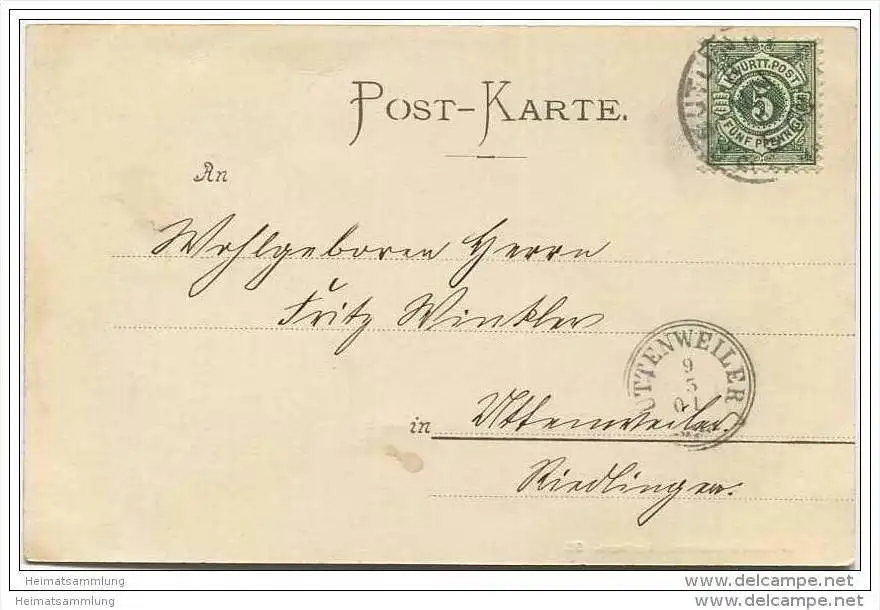 WÜRTT. POST
5
FÜNF PFENNIG
POST-KARTE.
An
Wohlgeboren Herrn
Fritz Winkler
UTTENWEILER
9
5
01
in Uttenweiler
Riedlingen.
Heimatsammlung
www.delcampe.net
Heimatsammlung
www.delcampe.net